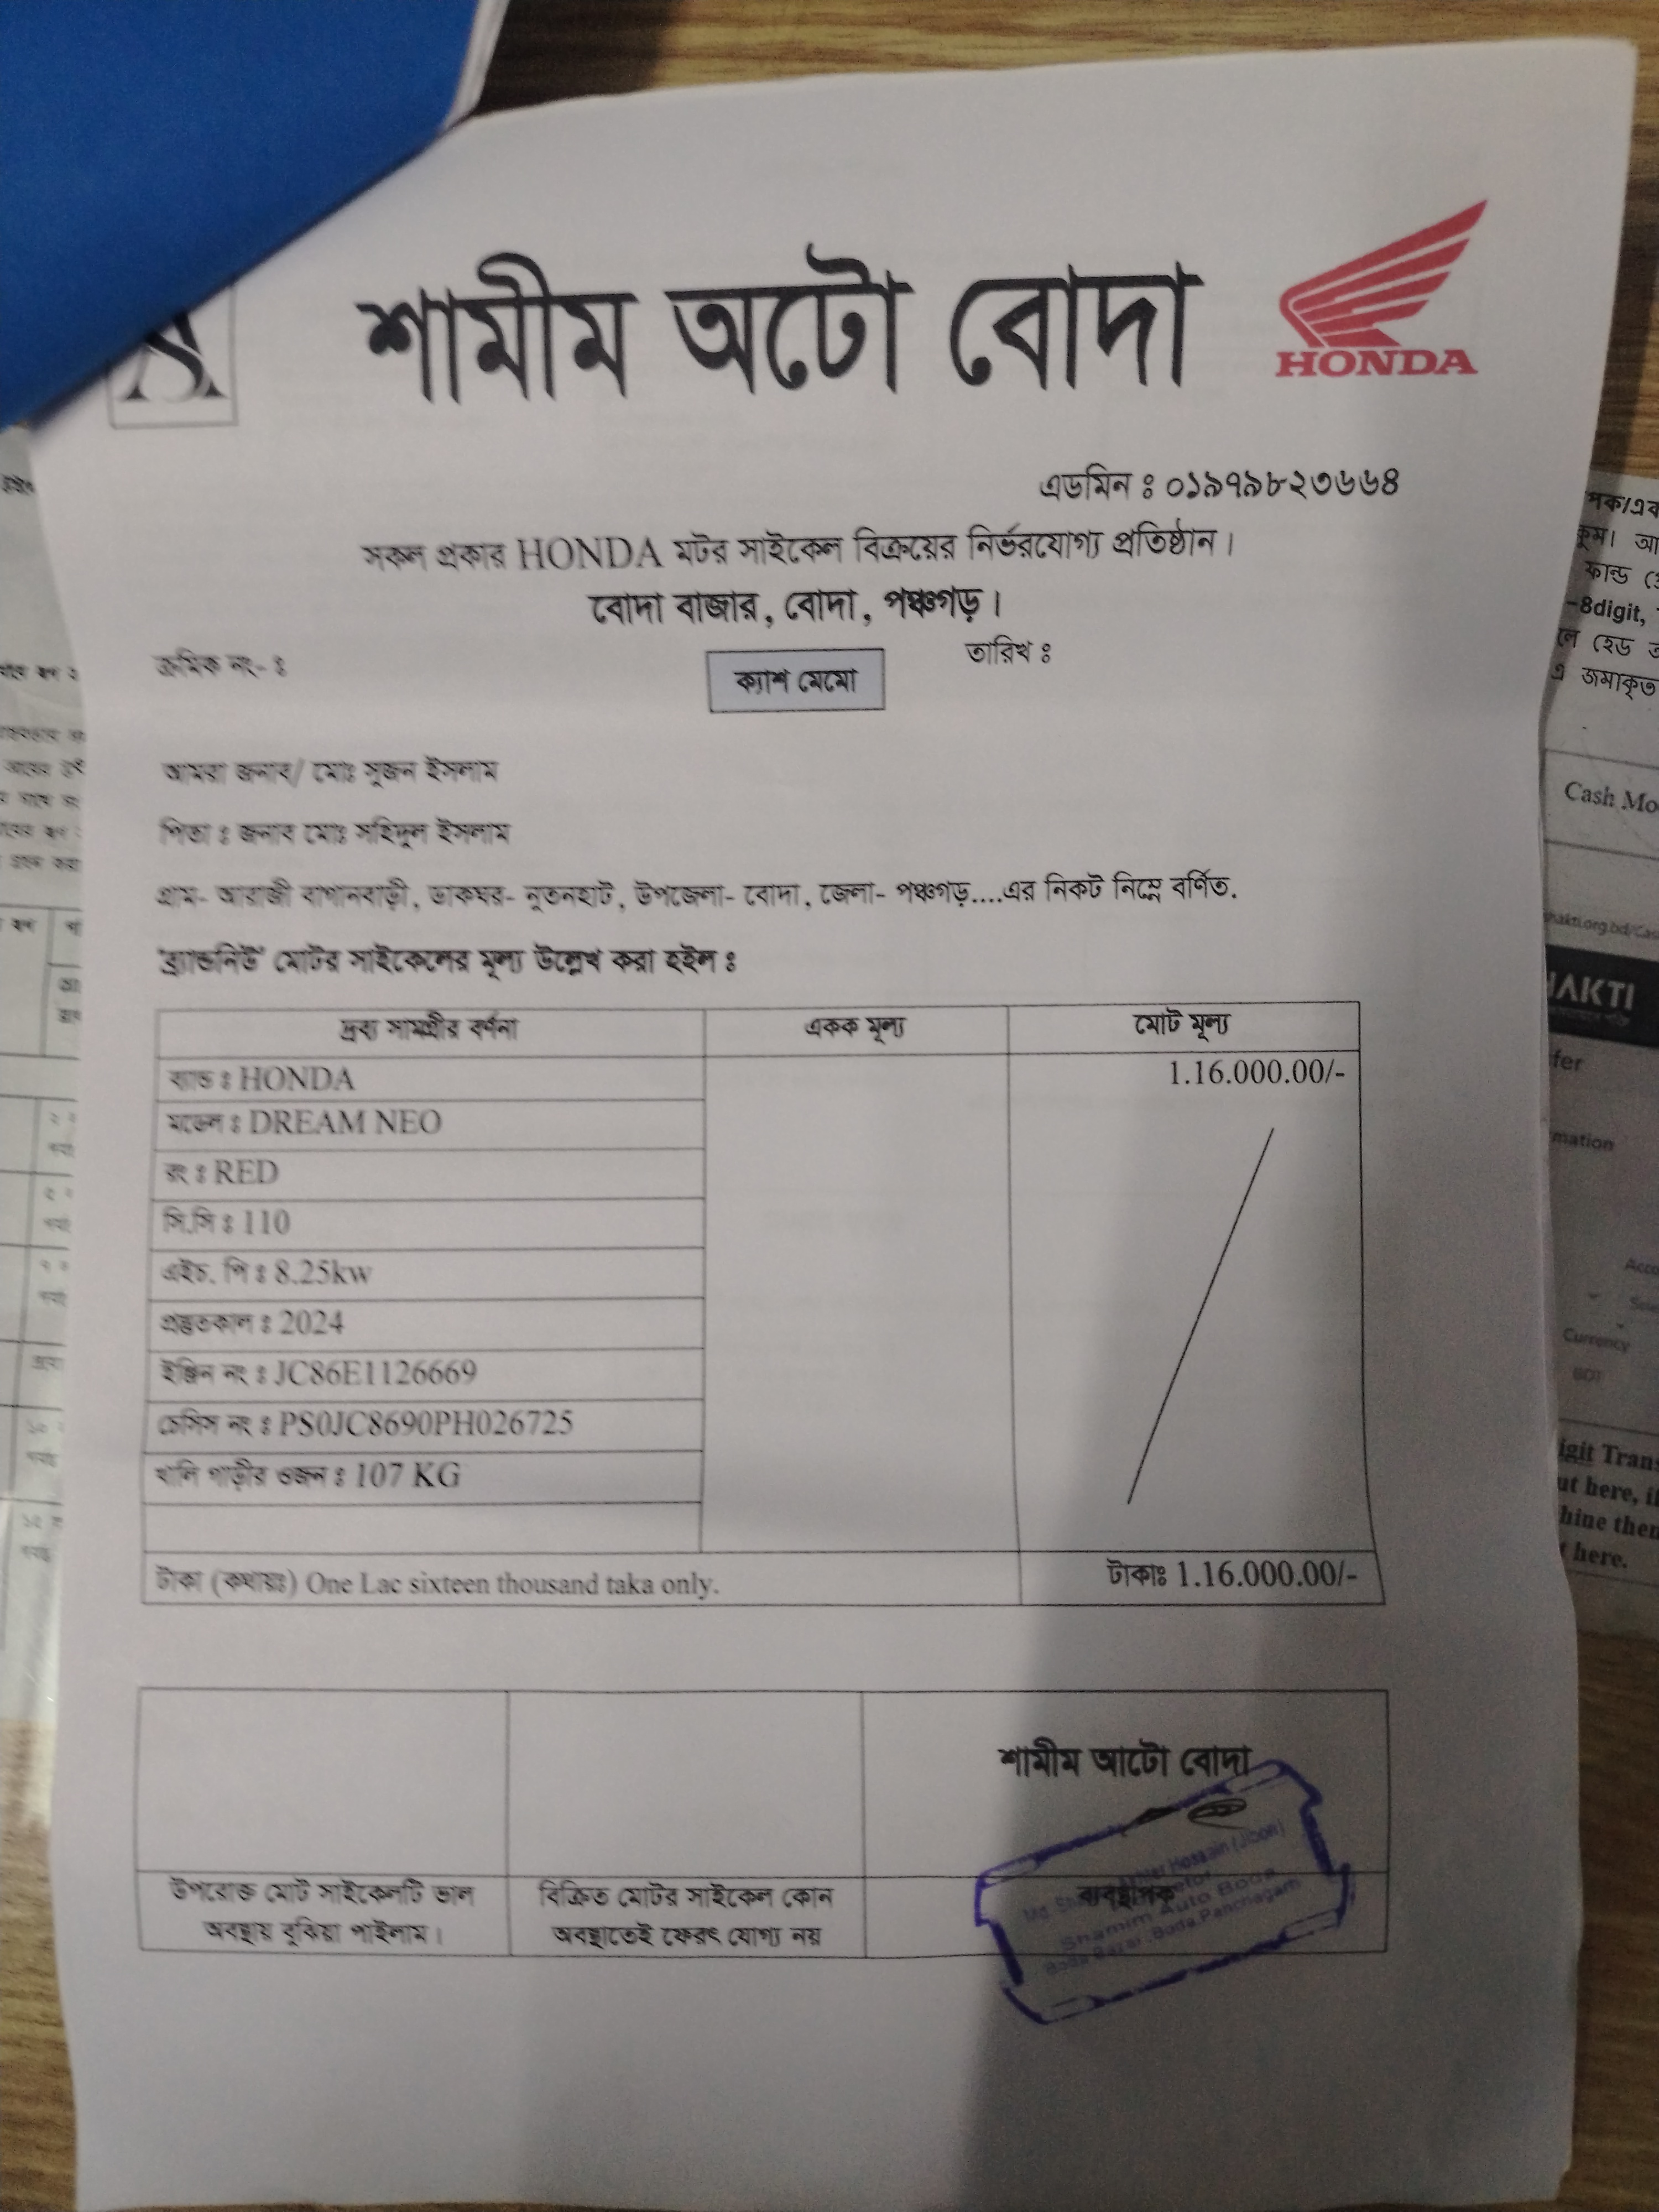 শামীম অটো বোদা
HONDA
এডমিন ঃ ০১৯৭৯৮২৩৬৬৪
সকল প্রকার HONDA মটর সাইকেল বিক্রয়ের নির্ভরযোগ্য প্রতিষ্ঠান।
বোদা বাজার, বোদা, পঞ্চগড়।
ক্রমিক নং- ঃ
তারিখ ঃ
ক্যাশ মেমো
আমরা জনাব/ মোঃ সুজন ইসলাম
পিতা ঃ জনাব মোঃ সহিদুল ইসলাম
গ্রাম- আরাজী বাগানবাড়ী, ডাকঘর- নুতনহাট, উপজেলা- বোদা, জেলা- পঞ্চগড়....এর নিকট নিম্নে বর্ণিত.
'ব্র্যান্ডনিউ' মোটর সাইকেলের মূল্য উল্লেখ করা হইল ঃ
দ্রব্য সামগ্রীর বর্ণনা একক মূল্য মোট মূল্য
ব্যান্ড ঃ HONDA 1.16.000.00/-
মডেল ঃ DREAM NEO
রং ঃ RED
সি.সি ঃ 110
এইচ. পি ঃ 8.25kw
প্রস্তুতকাল ঃ 2024
ইঞ্জিন নং ঃ JC86E1126669
চেসিস নং ঃ PS0JC8690PH026725
খালি গাড়ীর ওজন ঃ 107 KG
টাকা (কথায়ঃ) One Lac sixteen thousand taka only. টাকাঃ 1.16.000.00/-
শামীম আটো বোদা
উপরোক্ত মোট সাইকেলটি ভাল
অবস্থায় বুঝিয়া পাইলাম।
বিক্রিত মোটর সাইকেল কোন
অবস্থাতেই ফেরৎ যোগ্য নয়
ব্যবস্থাপক
Hossain (Jibon)
Shamim Auto Boda
Boda Bazar, Boda, Panchagarh
পক/এক
-8digit,
হেড
জমাকৃত
Cash Mo
AKTI
fer
mation
Currency
BDT
igit Trans
ut here, i
hine then
here.